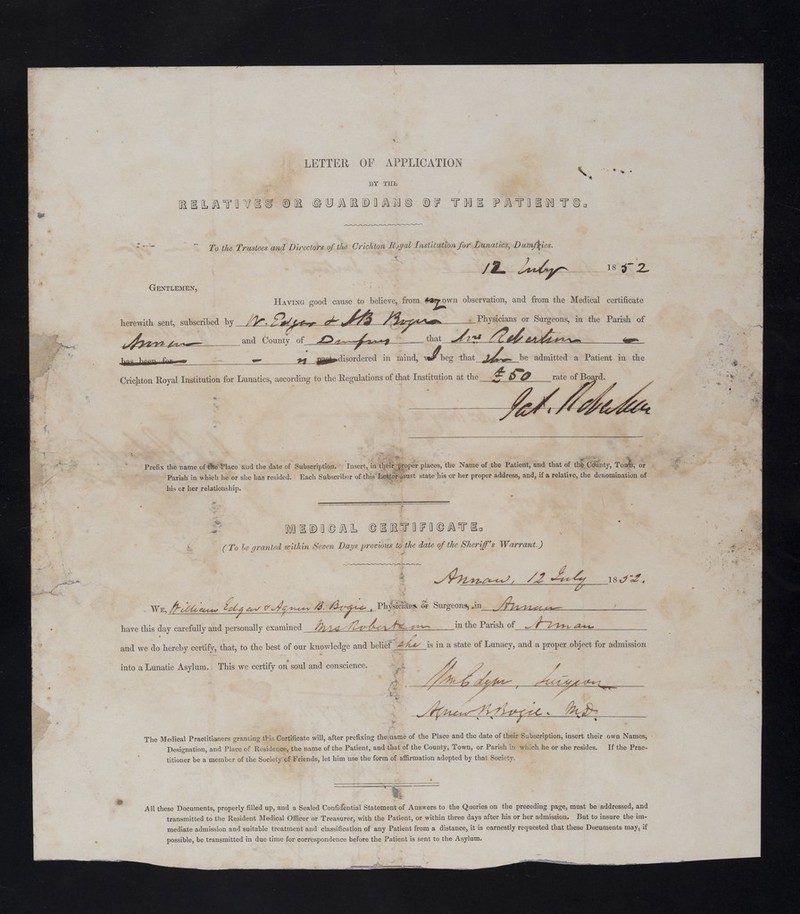 LETTER OF APPLICATION
BY THE
RELATIVES OR GUARDIANS OF THE PATIENTS.
To the Trustees and Directors of the Crichton Royal Institution for Lunatics, Dumfries.
12 July 1852
GENTLEMEN,
HAVING good cause to believe, from my own observation, and from the Medical certificate
herewith sent, subscribed by W. Edgar & AB Bogie Physicians or Surgeons, in the Parish of
Annan and County of Dumfries that Mrs Robertson
has been for is disordered in mind, I beg that she be admitted a Patient in the
Crichton Royal Institution for Lunatics, according to the Regulations of that Institution at the £50 rate of Board.
Robertson
Prefix the name of the Place and the date of Subscription. Insert, in their proper places, the Name of the Patient, and that of the County, Town, or
Parish in which he or she has resided. Each Subscriber of this Letter must state his or her proper address, and, if a relative, the denomination of
his or her relationship.
MEDICAL CERTIFICATE.
(To be granted within Seven Days previous to the date of the Sheriff's Warrant.)
Annan, 12 July 1852.
WE, William Edgar & Agnew B. Bogie, Physicians or Surgeons, in Annan
have this day carefully and personally examined Mrs Robertson in the Parish of Annan
and we do hereby certify, that, to the best of our knowledge and belief she is in a state of Lunacy, and a proper object for admission
into a Lunatic Asylum. This we certify on soul and conscience.
Wm Edgar, Surgeon
Agnew B. Bogie. M.D.
The Medical Practitioners granting this Certificate will, after prefixing the name of the Place and the date of their Subscription, insert their own Names,
Designation, and Place of Residence, the name of the Patient, and that of the County, Town, or Parish in which he or she resides. If the Prac-
titioner be a member of the Society of Friends, let him use the form of affirmation adopted by that Society.
All these Documents, properly filled up, and a Sealed Confidential Statement of Answers to the Queries on the preceding page, must be addressed, and
transmitted to the Resident Medical Officer or Treasurer, with the Patient, or within three days after his or her admission. But to insure the im-
mediate admission and suitable treatment and classification of any Patient from a distance, it is earnestly requested that these Documents may, if
possible, be transmitted in due time for correspondence before the Patient is sent to the Asylum.